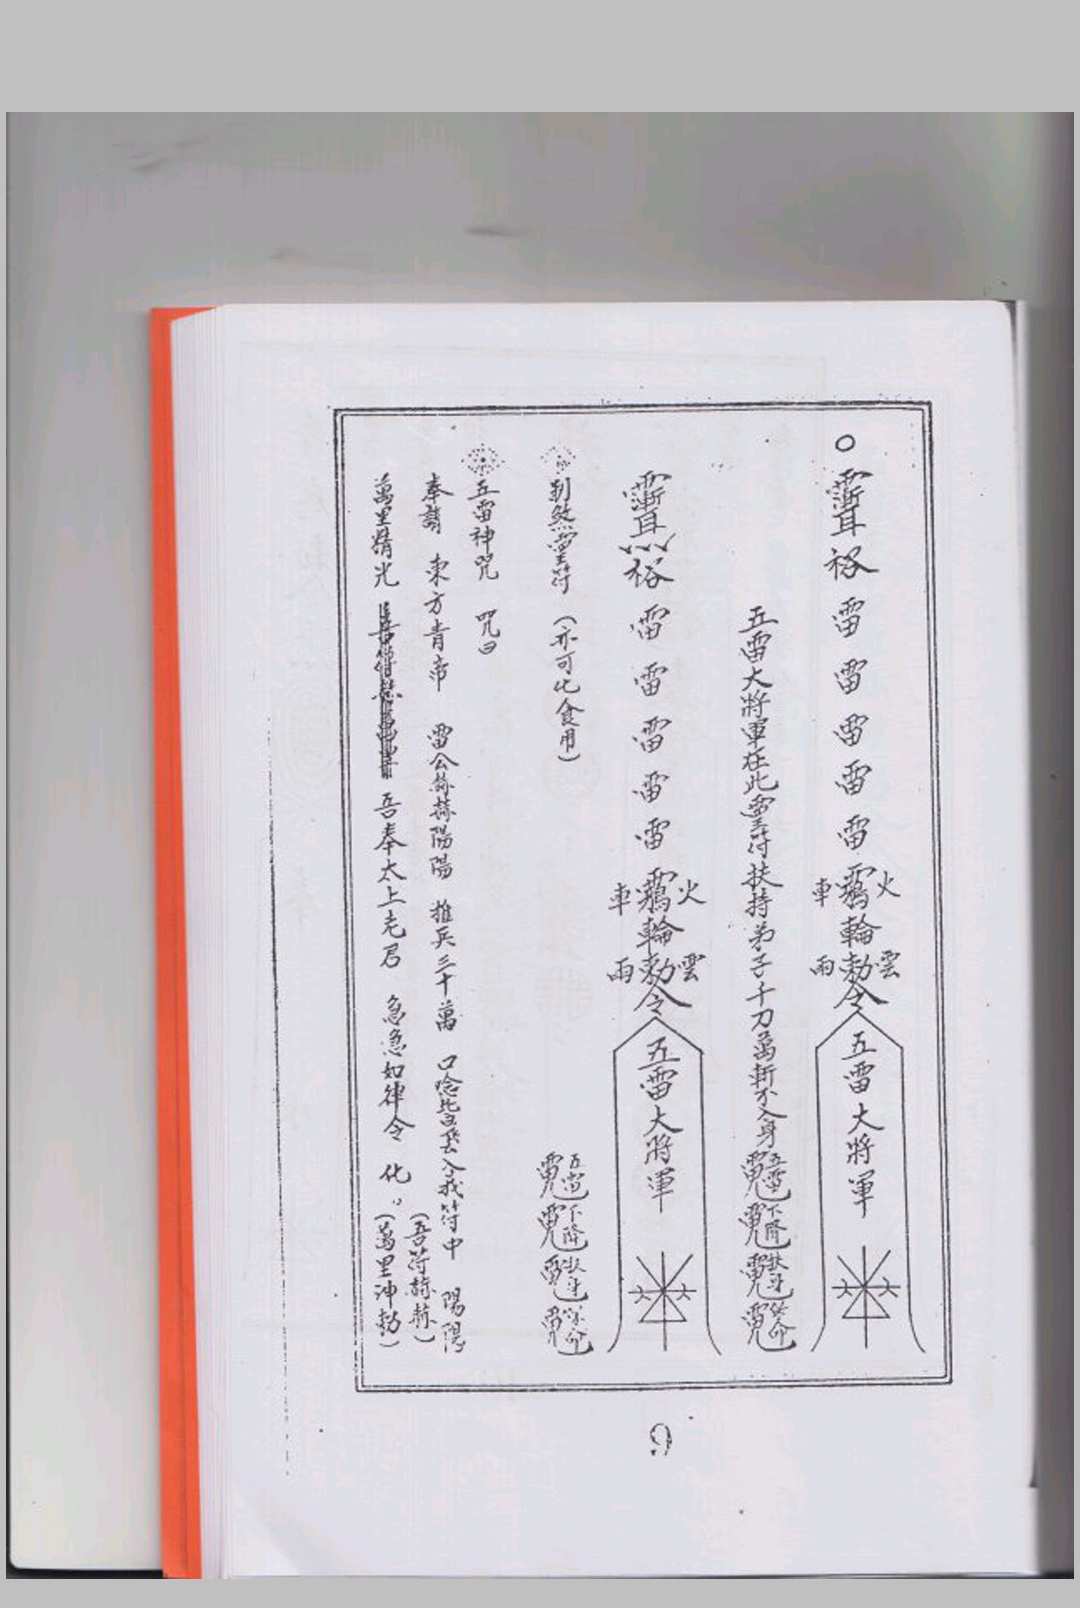 雷雷雷雷雷
火 車 輪 雲 雨 勅令
五雷大將軍
五雷大將軍在此靈符扶持弟子千刀萬斬不入身
五雷 下降 扶身 保命
雷雷雷雷雷
火 車 輪 雲 雨 勅令
五雷大將軍
制煞靈符 (亦可化食用)
五雷 下降 扶身 保命
五雷神咒 咒曰
奉請 東方青帝 雷公赫赫陽陽 推兵三十萬 口唸 入我符中 陽陽
(吾符赫赫)
萬里精光 吾奉太上老君 急急如律令 化。
(萬里沖勅)
6